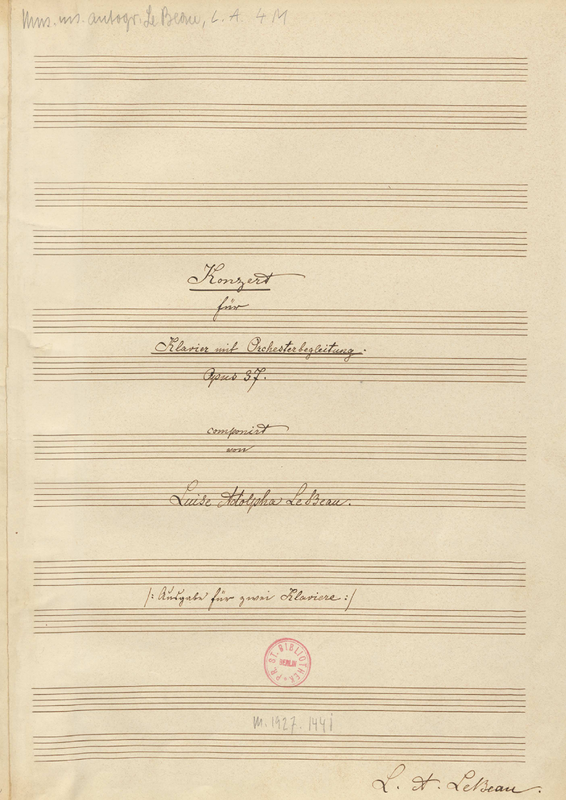 Mus. ms. autogr. Le Beau, L. A. 4 M
Konzert
für
Klavier mit Orchesterbegleitung.
Opus 37.
componirt
von
Luise Adolpha LeBeau.
/: Ausgabe für zwei Klaviere :/
PR. ST. BIBLIOTHEK
BERLIN
M. 1927. 1441
L. A. LeBeau.